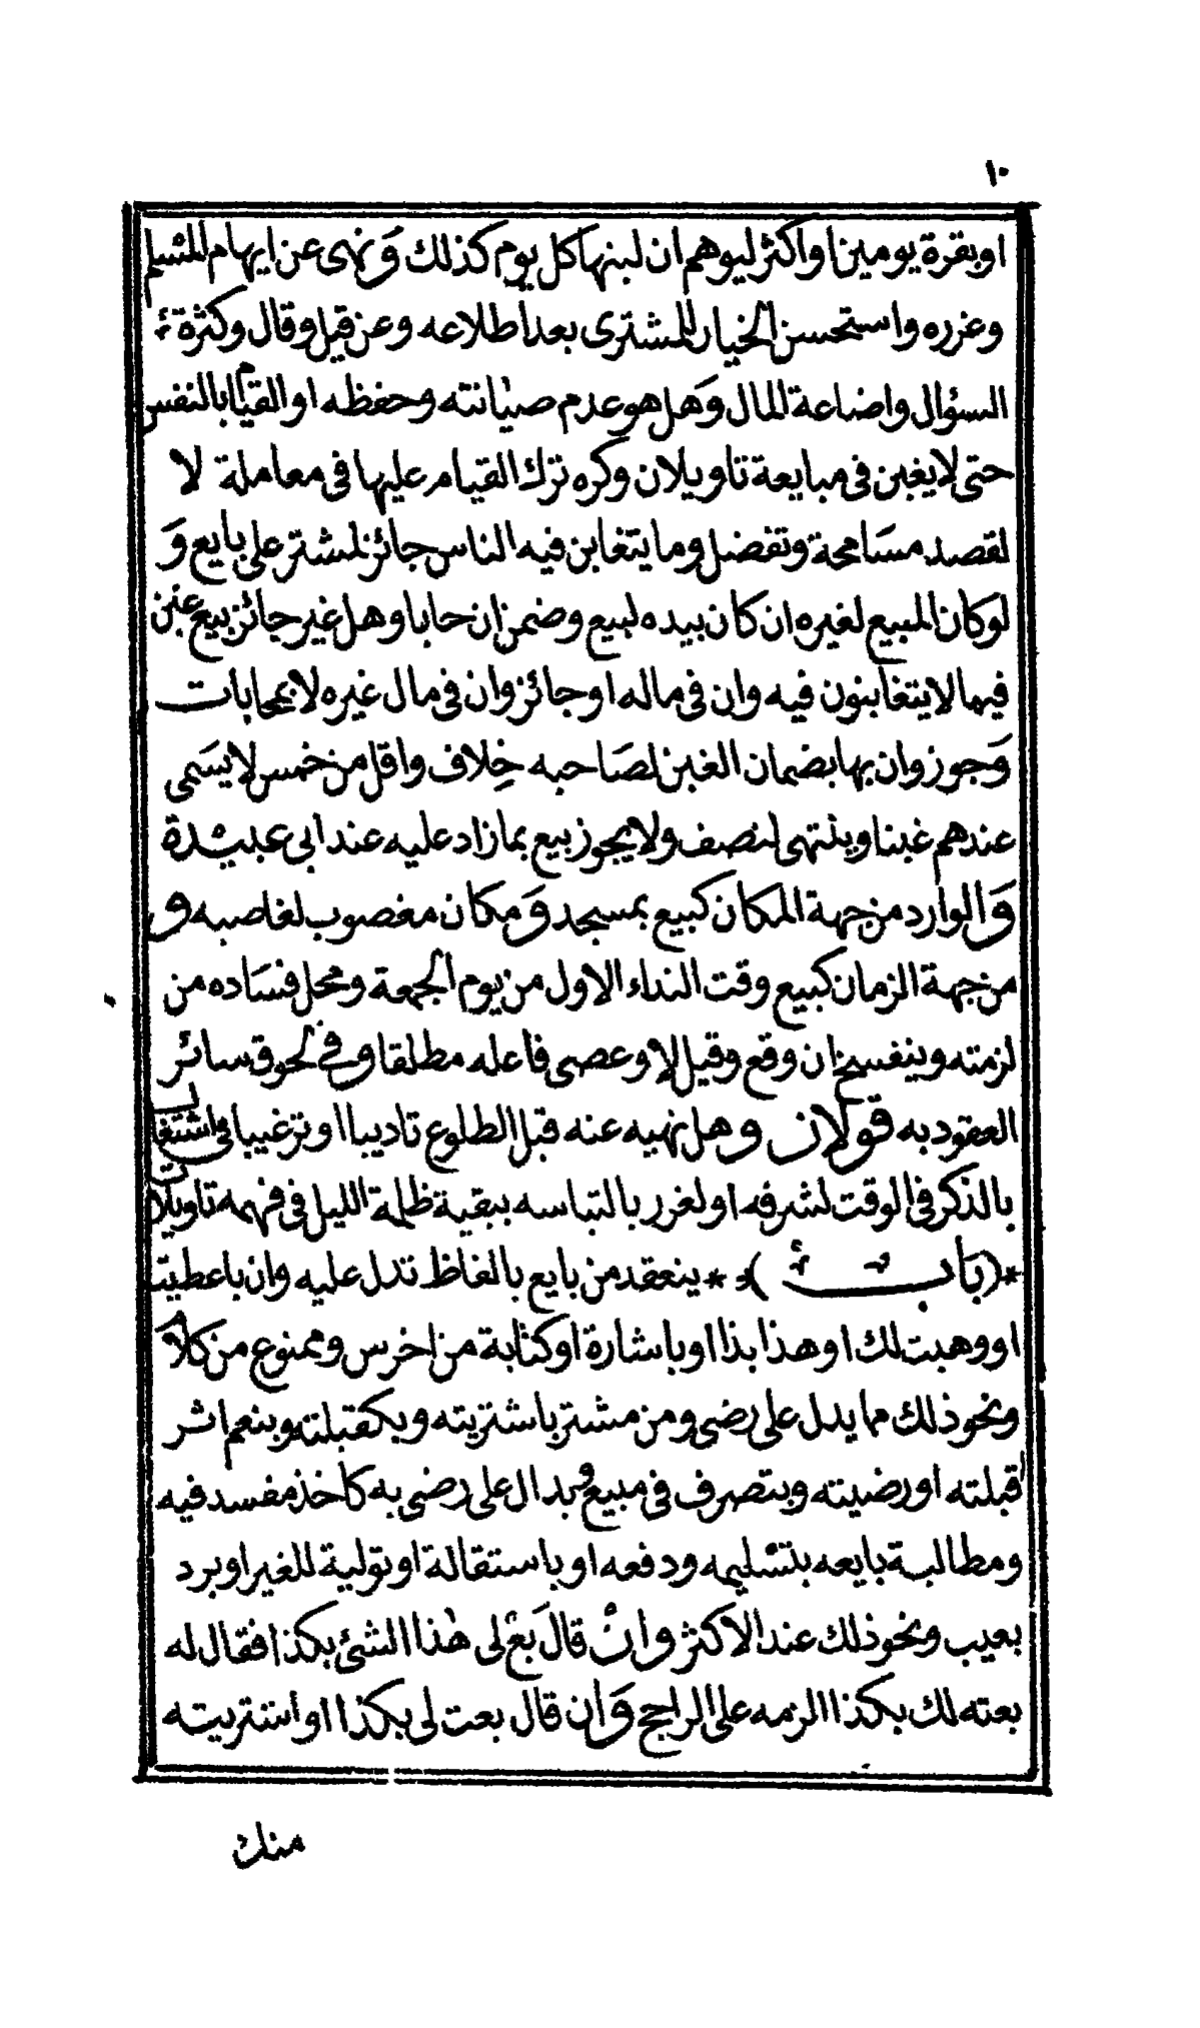 ١٠
او بقرة يومين او اكثر ليوهم ان لبنها كل يوم كذلك وَنهى عن ايهام المسْلم
وغرره واستحسن الخيار للمشترى بعد اطلاعه وعن قيل وقال وكثرة
السؤال واضاعة المال وَهل هو عدم صيانته وحفظه او القيام بالنفس
حتى لا يغبن فى مبايعة تاويلان وكره ترك القيام عليها فى معاملة لا
لقصد مسَامحة وتفضل وما يتغابن فيه الناس جائز لمشتر على بايع وَ
لو كان المبيع لغيره ان كان بيده لبيع وضمن ان حابا وهل غير جائز بيع غبن
فيما لا يتغابنون فيه وان فى ماله او جائز وان فى مال غيره لا بمحابات
وَجوز وان بها بضمان الغبن لصَاحبه خِلاف واقل من خمس لا يسَمى
عندهم غبنا وينتهى لنصف ولا يجوز بيع بما زاد عليه عند ابى عبيْدة
وَالوارد من جهة المكان كبيع بمسجد وَمكان مغصوب لغاصبه و
من جهة الزمان كبيع وقت النداء الاول من يوم الجمعة ومحل فسَاده من
لزمته وينفسخ ان وقع وقيل لا وعصى فاعله مطلقا وفى لحوق سائر
العقود به قولان وهل نهيه عنه قبل الطلوع تاديبا او ترغيبا فى اشتغال
بالذكر فى الوقت لشرفه او لغرر بالتباسه ببقية ظلمة الليل فى فهمه تاويلات
*(بَاب)* ينعقد من بايع بالفاظ تدل عليه وان باعطيت
او وهبت لك او هذا بذا او باشارة او كتابة من اخرس وممنوع من كلام
ونحو ذلك مما يدل على رضى ومن مشتر باشتريته وبكقبلته وبنعم اثر
قبلته او رضيته وبتصرف فى مبيع وبدال على رضى به كاخذ مفسد فيه
ومطالبة بايعه بتسْليمه ودفعه او باستقالة او تولية للغير او برد
بعيب ونحو ذلك عند الاكثر وانْ قالَ بعْ لى هٰذا الشئ بكذا فقال له
بعته لك بكذا الزمه على الراجح وَان قال بعت لى بكذا او اشتريته
منك